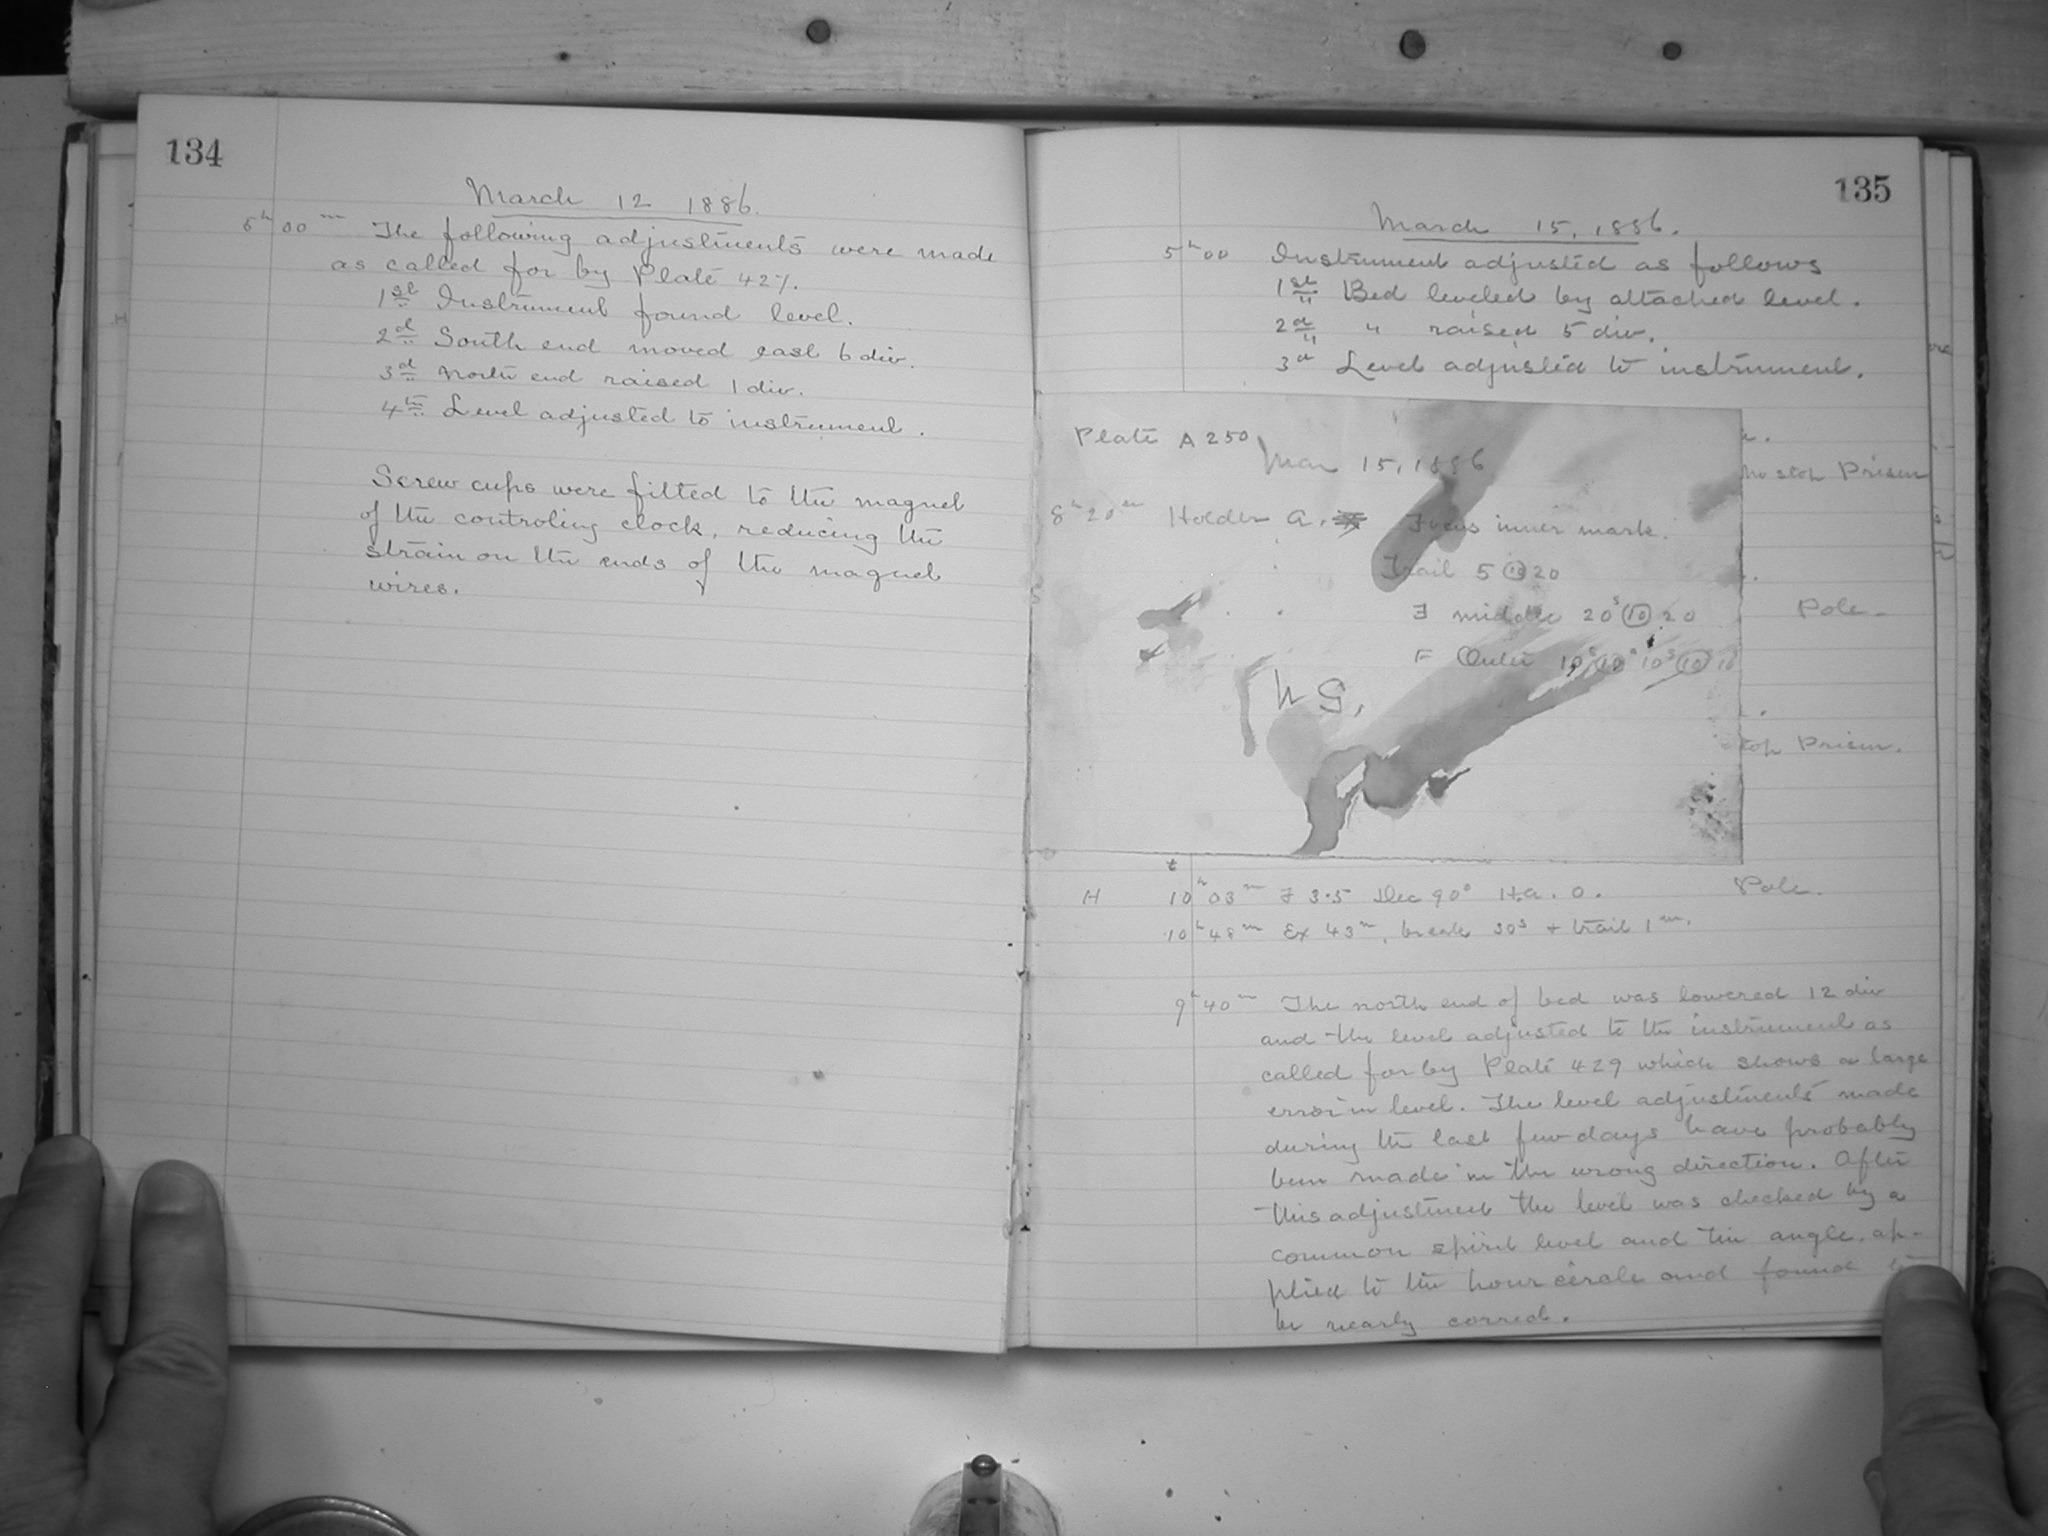 134
March 12 1886.
5h 00m The following adjustments were made
as called for by Plate 427.
1st Instrument found level.
2d South end moved east 6 div.
3d North end raised 1 div.
4th Level adjusted to instrument.
Screw cups were fitted to the magnet
of the controling clock, reducing the
strain on the ends of the magnet
wires.
135
March 15, 1886.
5h 00 Instrument adjusted as follows
1st Bed leveled by attached level.
2d " raised 5 div.
3d Level adjusted to instrument.
Plate A 250
Mar 15, 1886
no stop Prism
8h 20m Holder A. Focus inner mark.
Trail 5 (10) 20
F middle 20s (10) 20
Pole
F Outer 10s (10)s 10s (10)s 10
N G.
stop Prism.
H 10h 03m F 3.5 Dec 90° H.a. 0. Pole.
10h 48m Ex 43m, break 30s + trail 1m.
9h 40m The north end of bed was lowered 12 div
and the level adjusted to the instrument as
called for by Plate 429 which shows a large
error in level. The level adjustments made
during the last few days have probably
been made in the wrong direction. After
this adjustment the level was checked by a
common spirit level and tin angle, ap-
plied to the hour circle and found to
be nearly correct.